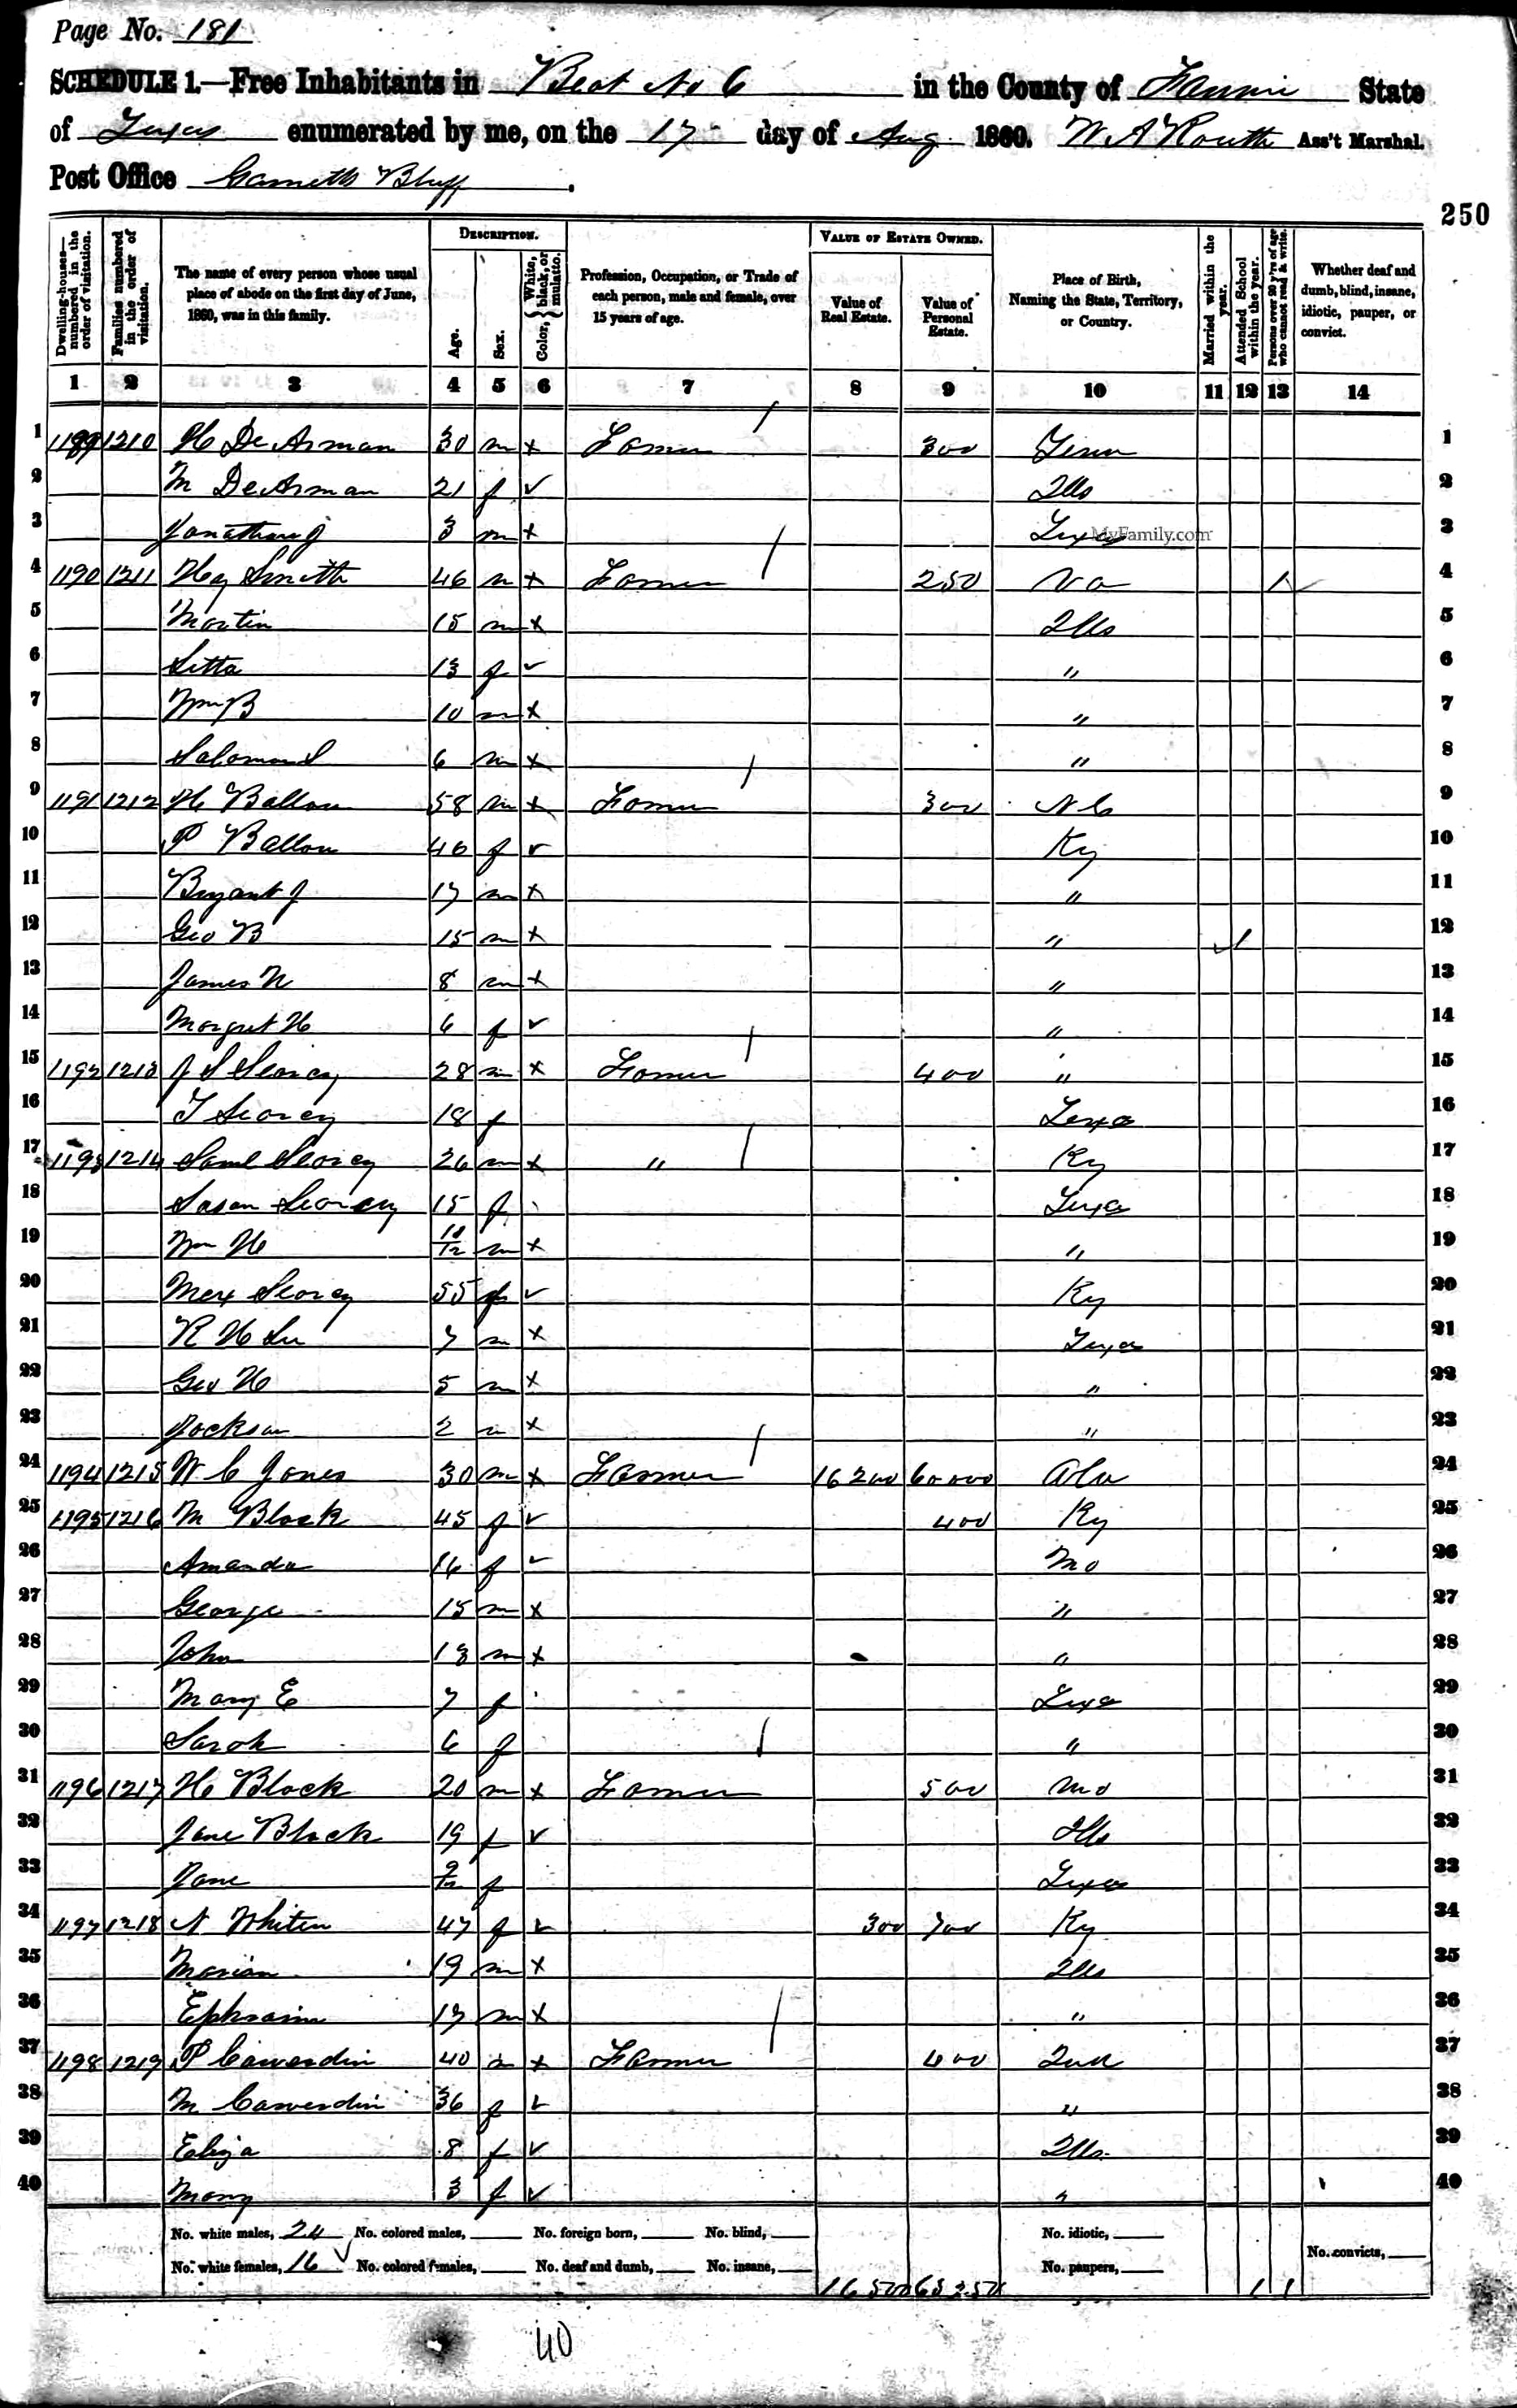 Page No. 181
SCHEDULE 1.—Free Inhabitants in Beat No 6 in the County of Fannin State
of Texas enumerated by me, on the 17 day of Aug 1860. W A Routh Ass't Marshal.
Post Office Garnetts Bluff.
250
Dwelling-houses—numbered in the order of visitation. Families numbered in the order of visitation. The name of every person whose usual place of abode on the first day of June, 1860, was in this family. DESCRIPTION. Age. Sex. Color, {White, black, or mulatto. Profession, Occupation, or Trade of each person, male and female, over 15 years of age. VALUE OF ESTATE OWNED. Value of Real Estate. Value of Personal Estate. Place of Birth, Naming the State, Territory, or Country. Married within the year. Attended School within the year. Persons over 20 y'rs of age who cannot read & write. Whether deaf and dumb, blind, insane, idiotic, pauper, or convict.
1 2 3 4 5 6 7 8 9 10 11 12 13 14
1 1189 1210 H DeArman 30 m x Farmer 300 Tenn 1
2 M DeArman 21 f ✓ Ills 2
3 Jonathan J 3 m x Texas 3
MyFamily.com
4 1190 1211 Hy Smith 46 m x Farmer 250 Va / 4
5 Martin 15 m x Ills 5
6 Sitta 13 f ✓ " 6
7 Wm B 10 m x " 7
8 Solomon S 6 m x " 8
9 1191 1212 H Ballou 58 m x Farmer 300 N C 9
10 P Ballou 46 f ✓ Ky 10
11 Bryant J 17 m x " 11
12 Geo B 15 m x " / 12
13 James N 8 m x " 13
14 Margret H 6 f ✓ " 14
15 1192 1213 J S Searcy 28 m x Farmer 400 " 15
16 T Searcy 18 f Texa 16
17 1193 1214 Saml Searcy 26 m x " Ky 17
18 Susan Searcy 15 f Texa 18
19 Wm H 10/12 m x " 19
20 Searcy 55 f ✓ Ky 20
21 R H Lee 7 m x Texa 21
22 Geo H 5 m x " 22
23 Jackson 2 m x " 23
24 1194 1215 W C Jones 30 m x Farmer 16200 60000 Ala 24
25 1195 1216 M Black 45 f ✓ 400 Ky 25
26 Amanda 16 f ✓ Mo 26
27 George 15 m x " 27
28 John 13 m x " 28
29 Mary E 7 f Texa 29
30 Sarah 6 f " 30
31 1196 1217 H Black 20 m x Farmer 500 Mo 31
32 Jane Black 19 f ✓ Ills 32
33 Jane 9/12 f Texas 33
34 1197 1218 N Whiten 47 f ✓ 300 700 Ky 34
35 Marian 19 m x Ills 35
36 Ephraim 17 m x " 36
37 1198 1219 P Cawerdin 40 m x Farmer 400 Ind 37
38 M Cawerdin 36 f ✓ " 38
39 Eliza 8 f ✓ Ills 39
40 Mary 3 f ✓ " 40
No. white males, 24 No. colored males, No. foreign born, No. blind, No. idiotic,
No. white females, 16 No. colored females, No. deaf and dumb, No. insane, No. paupers, No. convicts,
16500 63250 1 1
40